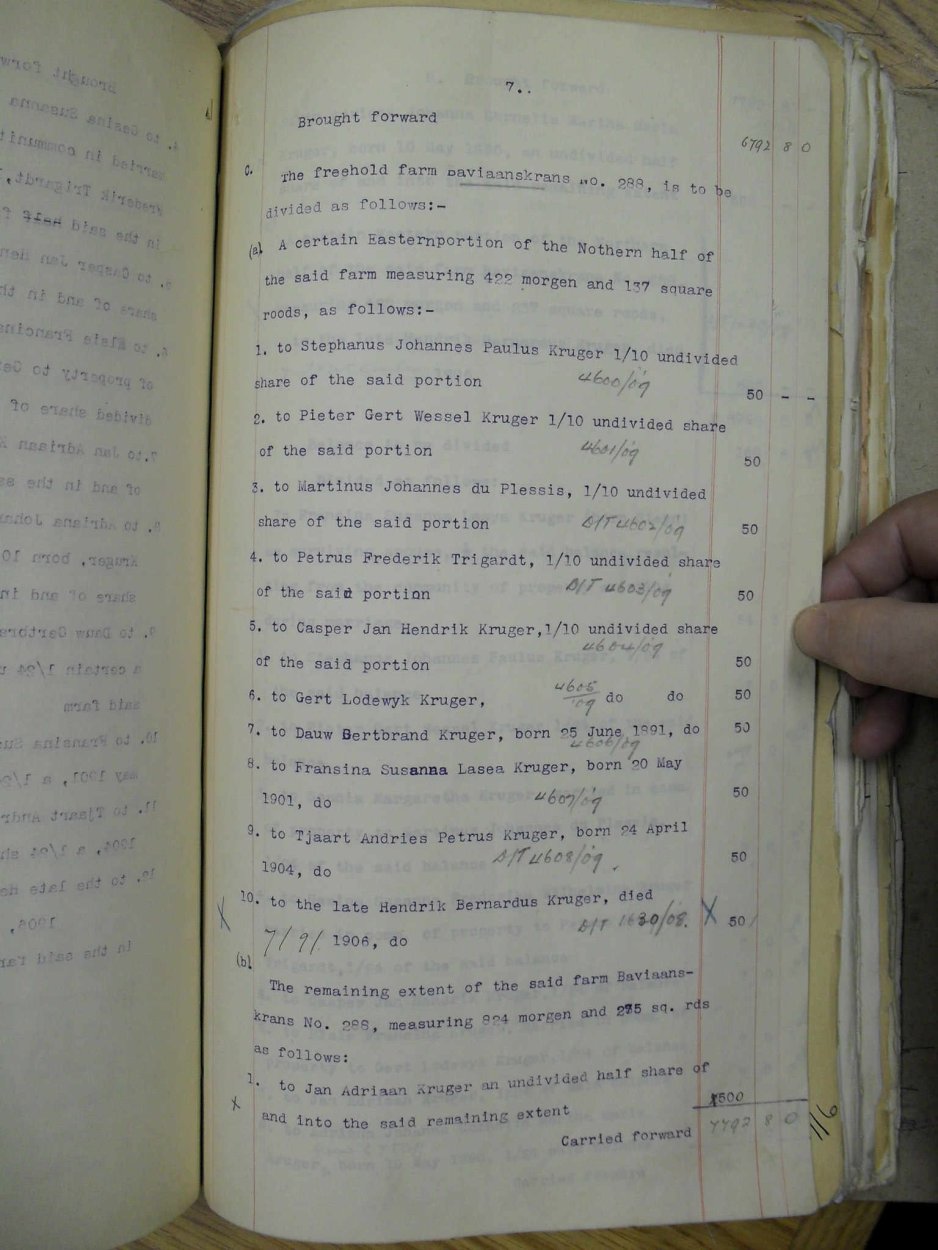 7..
Brought forward
6792 8 0
C. The freehold farm Baviaanskrans No. 288, is to be
divided as follows:-
(a) A certain Easternportion of the Nothern half of
the said farm measuring 422 morgen and 137 square
roods, as follows:-
1. to Stephanus Johannes Paulus Kruger 1/10 undivided
share of the said portion 4600/09 50 - -
2. to Pieter Gert Wessel Kruger 1/10 undivided share
of the said portion 4601/09 50
3. to Martinus Johannes du Plessis, 1/10 undivided
share of the said portion D/T 4602/09 50
4. to Petrus Frederik Trigardt, 1/10 undivided share
of the said portion D/T 4603/09 50
5. to Casper Jan Hendrik Kruger,1/10 undivided share
of the said portion 4604/09 50
6. to Gert Lodewyk Kruger, 4605/09 do do 50
7. to Dauw Gertbrand Kruger, born 25 June 1891, do 50
4606/09
8. to Fransina Susanna Lasea Kruger, born 20 May
1901, do 4607/09 50
9. to Tjaart Andries Petrus Kruger, born 24 April
1904, do D/T 4608/09. 50
X 10. to the late Hendrik Bernardus Kruger, died X
7/9/ 1906, do D/T 1630/08. 50/
(b) The remaining extent of the said farm Baviaans-
krans No. 288, measuring 824 morgen and 275 sq. rds
as follows:
1. to Jan Adriaan Kruger an undivided half share of
X and into the said remaining extent 500
Carried forward 7792 8 0
116